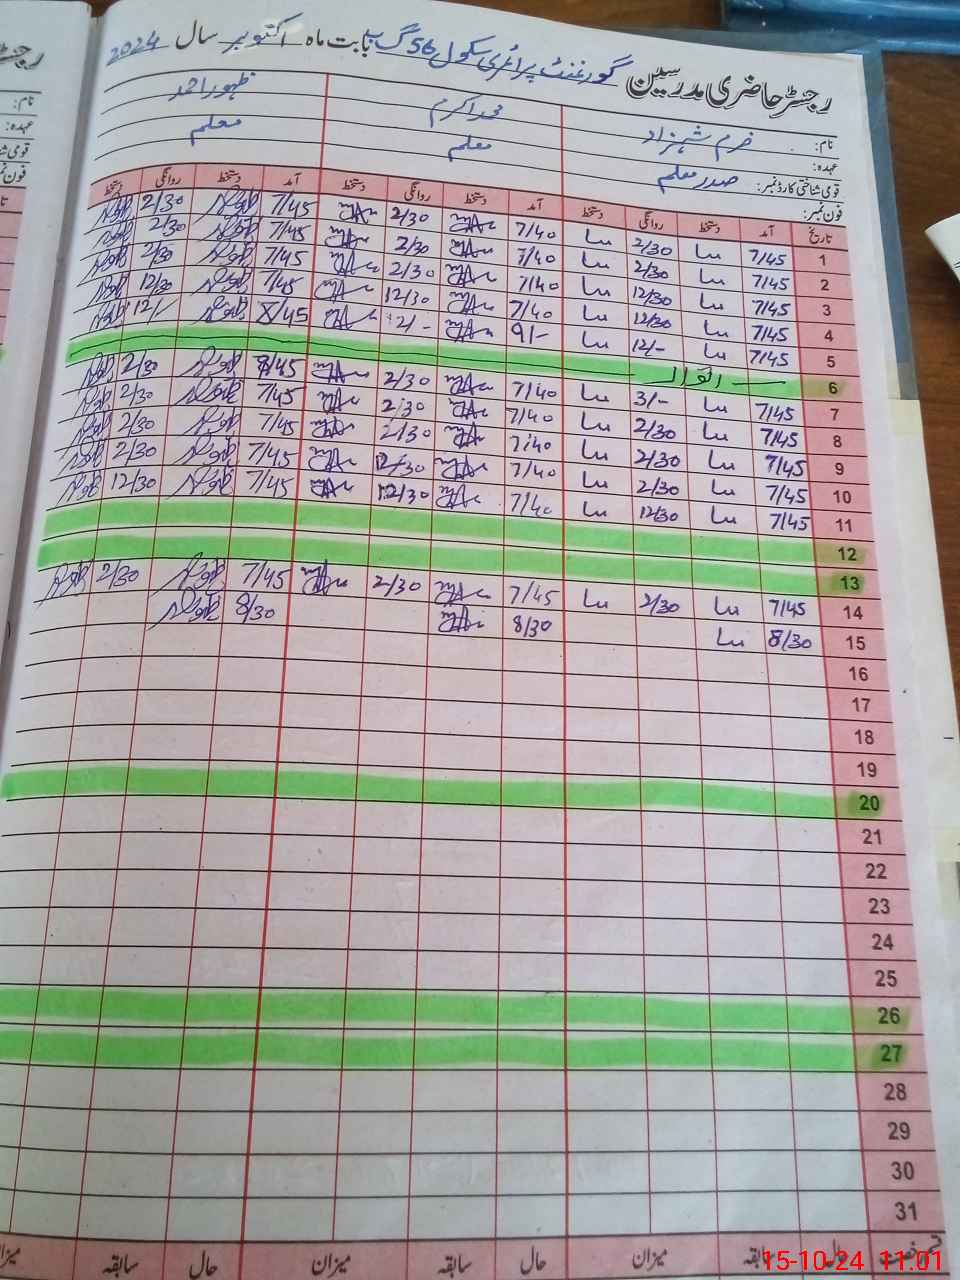 رجسٹر حاضری مدرسین گورنمنٹ پرائمری سکول 56 گ ب بابت ماہ اکتوبر سال 2024
نام: خرم شہزاد محمد اکرم ظہور احمد
عہدہ: صدر معلم معلم معلم
قومی شناختی کارڈ نمبر:
فون نمبر:
تاریخ آمد دستخط روانگی دستخط آمد دستخط روانگی دستخط آمد دستخط روانگی دستخط
1 7/45 2/30 7/40 2/30 7/45 2/30
2 7/45 2/30 7/40 2/30 7/45 2/30
3 7/45 12/30 7/40 2/30 7/45 2/30
4 7/45 12/30 7/40 12/30 7/45 12/30
5 7/45 12/- 9/- 12/- 8/45 12/-
6 اتوار
7 7/45 3/- 7/40 2/30 8/45 2/30
8 7/45 2/30 7/40 2/30 7/45 2/30
9 7/45 2/30 7/40 2/30 7/45 2/30
10 7/45 2/30 7/40 2/30 7/45 2/30
11 7/45 12/30 7/40 12/30 7/45 12/30
12
13
14 7/45 2/30 7/45 2/30 7/45 2/30
15 8/30 8/30 8/30
16
17
18
19
20
21
22
23
24
25
26
27
28
29
30
31
حال سابقہ میزان حال سابقہ میزان حال سابقہ
15-10-24 11:01